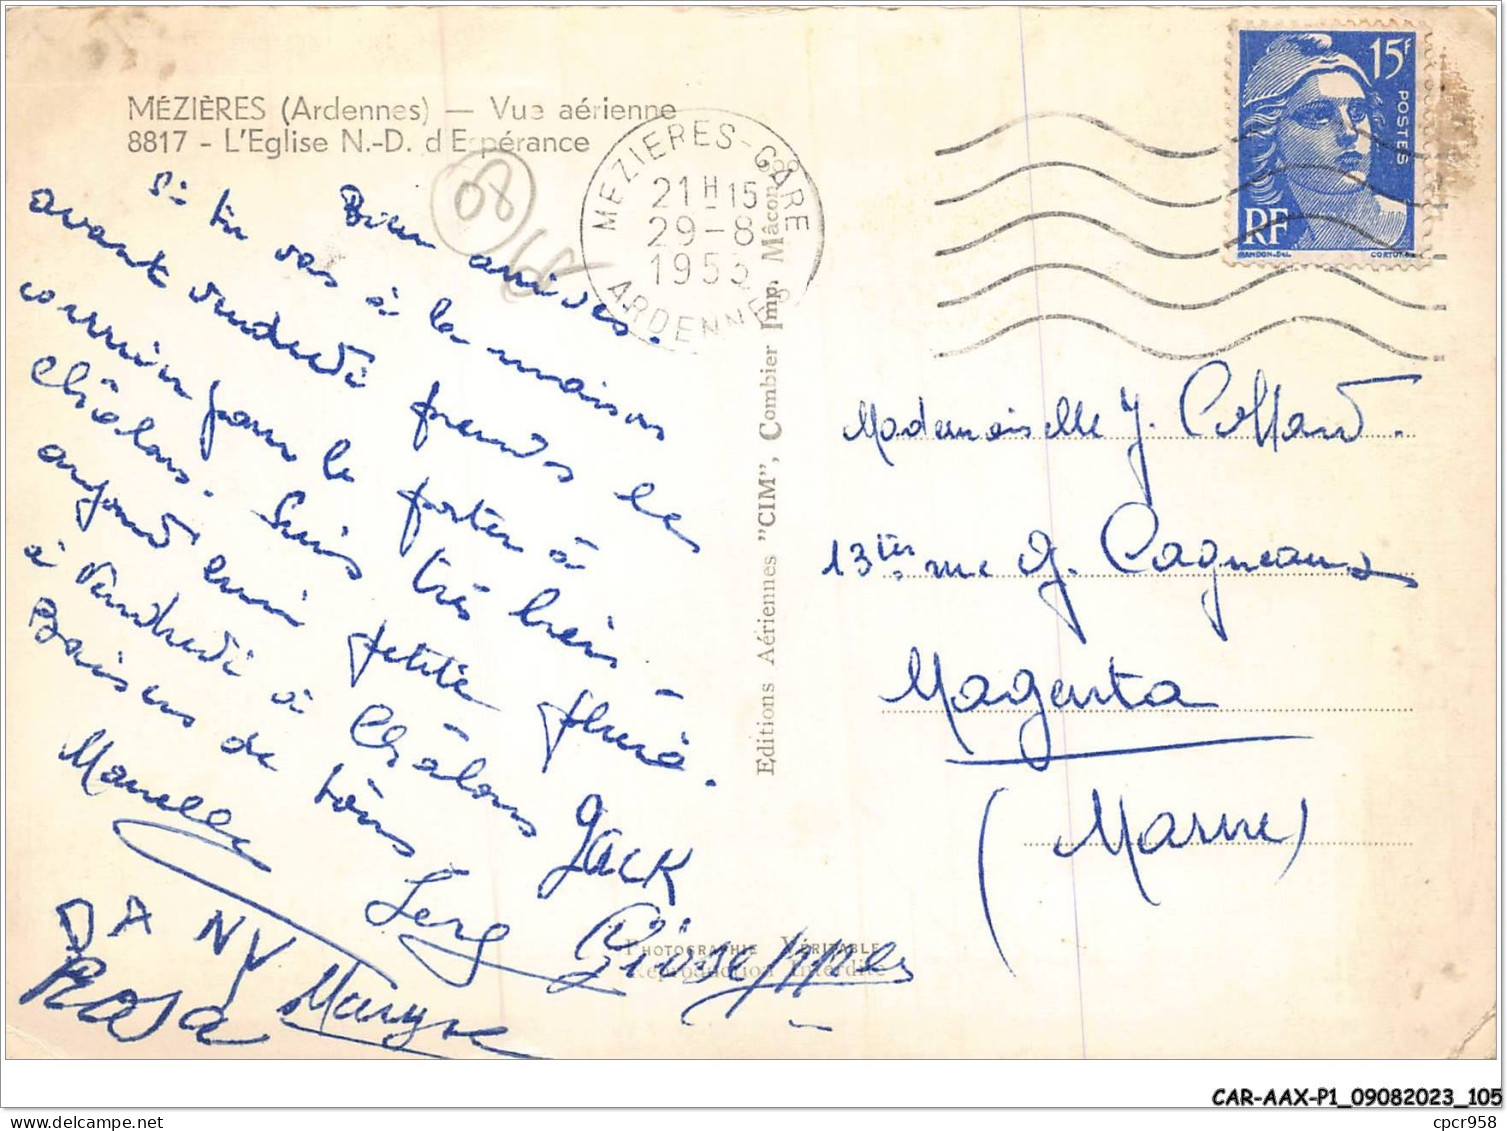 MÉZIÈRES (Ardennes) — Vue aérienne
8817 - L'Eglise N.-D. d'Espérance
08
MEZIERES-GARE
21H15
29-8
1953
ARDENNES
15F
POSTES
RF
Bien arrivés.
Si tu vas à la maison
avant vendredi prends le
courrier pour le porter à
Châlons. Suis très bien -
aujourd'hui petite pluie.
à vendredi à Châlons
Baisers de tous
Marcelle
JACK
Serg
Giuseppes
DANY
Maryse
ROSA
Editions Aériennes "CIM", Combier Imp. Mâcon
PHOTOGRAPHIE VÉRITABLE
Reproduction Interdite
Mademoiselle J. Collard.
13 ter rue G. Cagneaux
Magenta
(Marne)
CAR-AAX-P1_09082023_105
cpcr958